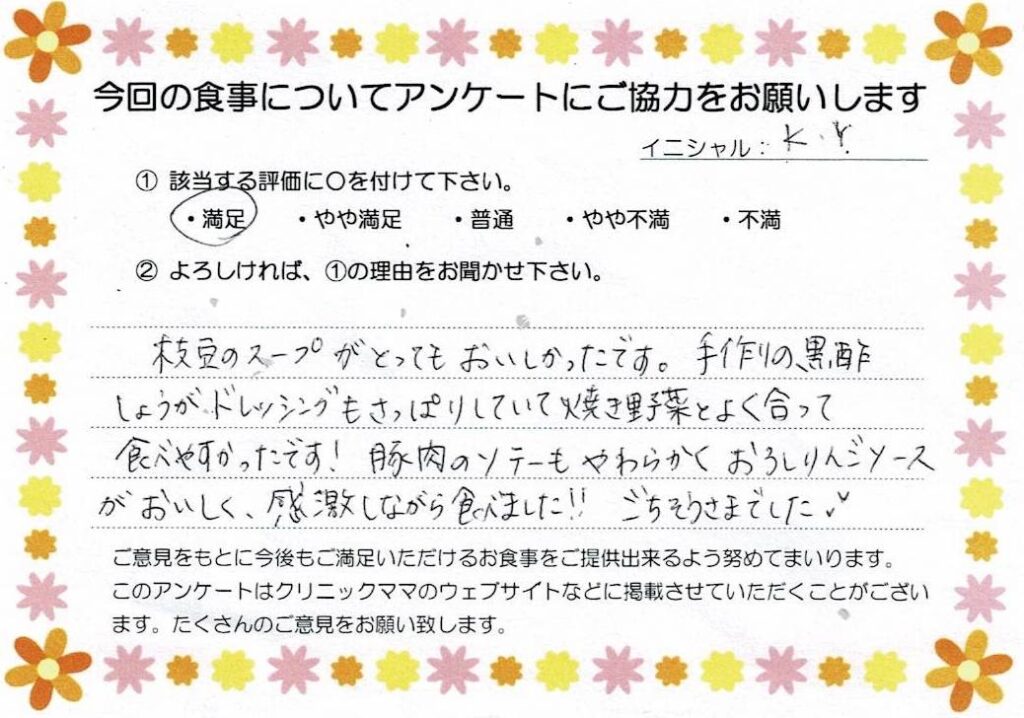 今回の食事についてアンケートにご協力をお願いします
イニシャル： K.Y.
① 該当する評価に〇を付けて下さい。
・満足 ・やや満足 ・普通 ・やや不満 ・不満
② よろしければ、①の理由をお聞かせ下さい。
枝豆のスープがとってもおいしかったです。手作りの黒酢
しょうがドレッシングもさっぱりしていて焼き野菜とよく合って
食べやすかったです！豚肉のソテーもやわらかくおろしりんごソース
がおいしく、感激しながら食べました!! ごちそうさまでした♥
ご意見をもとに今後もご満足いただけるお食事をご提供出来るよう努めてまいります。
このアンケートはクリニックママのウェブサイトなどに掲載させていただくことがござい
ます。たくさんのご意見をお願い致します。